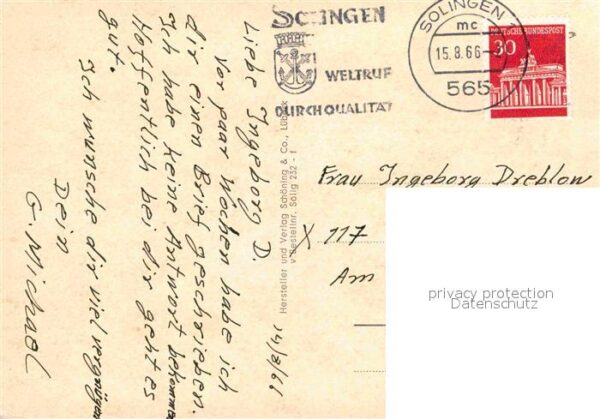 SOLINGEN
WELTRUF
DURCH QUALITÄT
SOLINGEN
mc
15.8.66-
565
DEUTSCHE BUNDESPOST
30
Liebe Ingeborg D.
Vor paar Wochen habe ich
dir einen Brief geschrieben.
Ich habe keine Antwort bekommen
Hoffentlich bei dir geht es
gut.
Ich wunsche dir viel vergnügen
Dein
G. Michael
14/8/66
Hersteller und Verlag Schöning & Co., Lübeck
Bestellnr. Solig 232 - f
Frau Ingeborg Dreblow
X 117
Am
privacy protection
Datenschutz